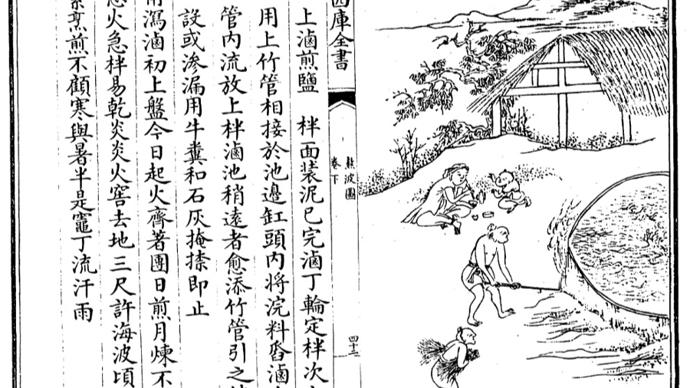 四庫全書
熬波圖
卷下
四十三
上滷煎鹽　柈面装泥已完滷丁輪定柈次
用上竹管相接於池邊缸頭内將浣料舀滷
管内流放上柈滷池稍遠者愈添竹管引之
設或渗漏用牛糞和石灰掩捺即止
瀉滷初上盤今日起火齊著團日煎月煉不
火急柈易乾炎炎火窖去地三尺許海波頃
烹煎不顧寒與暑半是竈丁流汗雨